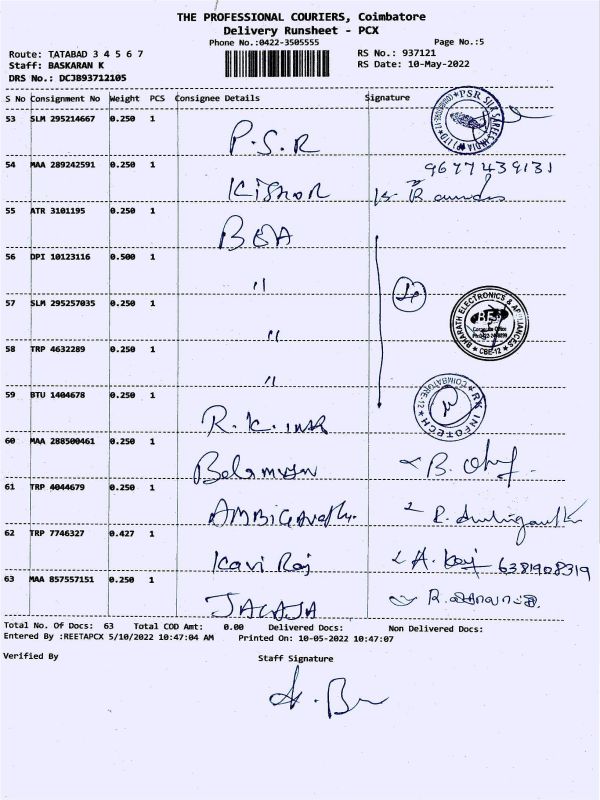 THE PROFESSIONAL COURIERS, Coimbatore
Delivery Runsheet - PCX
Phone No.:0422-3505555 Page No.:5
Route: TATABAD 3 4 5 6 7 RS No.: 937121
Staff: BASKARAN K RS Date: 10-May-2022
DRS No.: DCJB93712105
S No Consignment No Weight PCS Consignee Details Signature
53 SLM 295214667 0.250 1 P.S.R
54 MAA 289242591 0.250 1 Kishor 9677439131
55 ATR 3101195 0.250 1
56 DPI 10123116 0.500 1 "
57 SLM 295257035 0.250 1 "
BHARATH ELECTRONICS & APPLIANCES
Corporate Office
CBE-12
58 TRP 4632289 0.250 1 "
59 BTU 1404678 0.250 1 R.K. COIMBATORE-12 RK INFOTECH
60 MAA 288500461 0.250 1
61 TRP 4044679 0.250 1
62 TRP 7746327 0.427 1 Kavi Raj 6381908319
63 MAA 857557151 0.250 1
Total No. Of Docs: 63 Total COD Amt: 0.00 Delivered Docs: Non Delivered Docs:
Entered By :REETAPCX 5/10/2022 10:47:04 AM Printed On: 10-05-2022 10:47:07
Verified By Staff Signature